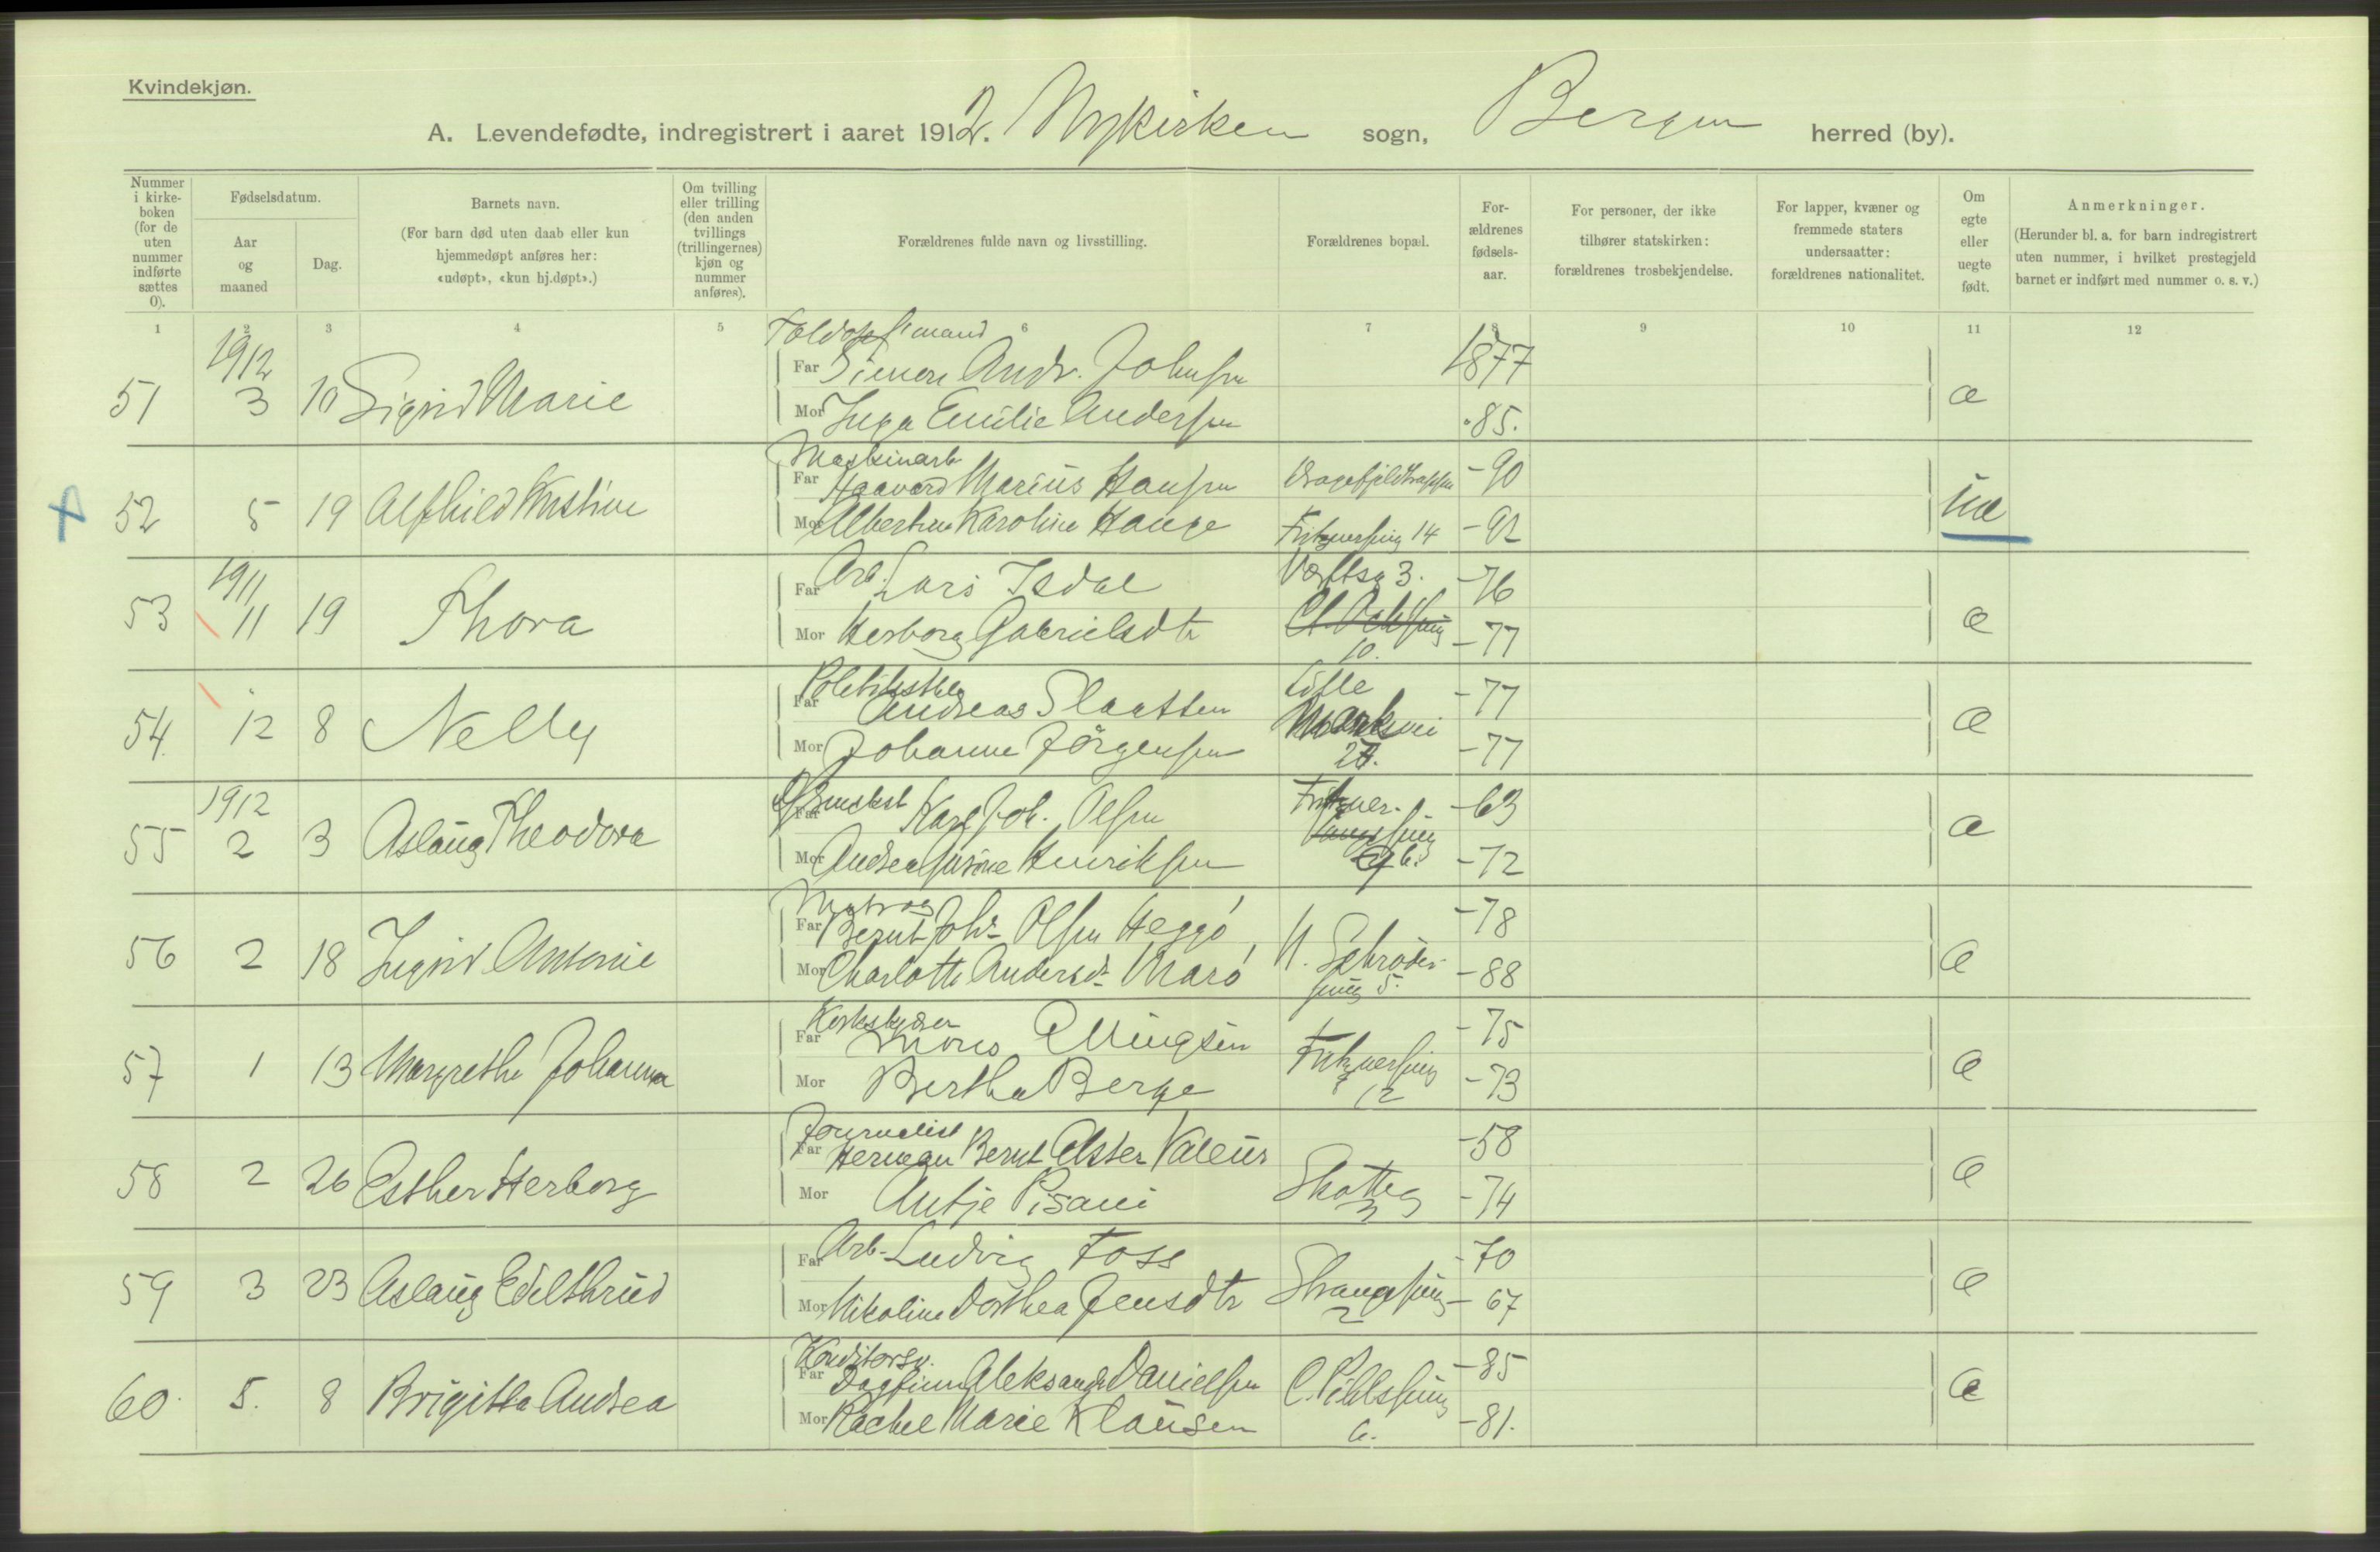 Kvindekjøn.
A. Levendefødte, indregistrert i aaret 1912. Nykirken sogn, Bergen herred (by).
Nummer i kirke-boken (for de uten nummer indførte sættes 0).
Fødselsdatum.
Aar og maaned
Dag.
Barnets navn.
(For barn død uten daab eller kun hjemmedøpt anføres her: «udøpt», «kun hj.døpt».)
Om tvilling eller trilling (den anden tvillings (trillingernes) kjøn og nummer anføres).
Forældrenes fulde navn og livsstilling.
Forældrenes bopæl.
For-ældrenes fødsels-aar.
For personer, der ikke tilhører statskirken: forældrenes trosbekjendelse.
For lapper, kvæner og fremmede staters undersaatter: forældrenes nationalitet.
Om egte eller uegte født.
Anmerkninger.
(Herunder bl. a. for barn indregistrert uten nummer, i hvilket prestegjeld barnet er indført med nummer o. s. v.)
1 2 3 4 5 6 7 8 9 10 11 12
1912
51 3 10 Sigrid Marie
Far Simon Andr. Johnsen 1877
Mor Inga Emilie Andersen 85. æ
Maskinarb
52 5 19 Alfhild Kristine
Far Haavard Marius Hansen -90
Mor Albertine Karoline Hauge Fritznersmg 14 -92 uæ
1911
53 11 19 Thora
Far Arb. Lars Isdal Verftsg 3. -76
Mor Herborg Gabrielsdtr 10. -77 æ
54. 12 8 Nelly
Far Andreas Slaatten Lille -77
Mor Johanne Jörgensen Markevei -77 æ
1912
55 2 3 Aslaug Theodora
Far Karl Joh. Olsen Fritzner- -63
Mor Andrea Susine Henriksen smug -72 æ
Matros
56 2 18 Ingrid Antonie
Far Bernt Johs Olsen Heggö -78
Mor Charlotte Andersdr Marö H. Schröder smug 5. -88 æ
57 1 13 Margrethe Johanna
Far Mons Ellingsen -75
Mor Bertha Berge Fritznersmug 12 -73 æ
Journalist
58 2 26 Esther Herborg
Far Herman Bernt Alster Valeur -58
Mor Antje Pisani Skotteg 3 -74 æ
59 3 23 Aslaug Edilthrud
Far Arb. Ludvig Foss -70
Mor Nikoline Dorthea Jensdtr Strangesmug 2 -67 æ
Konditorsv.
60. 5. 8 Brigitta Andrea
Far Dagfinn Aleksander Danielsen -85
Mor Rachel Marie Klausen C. Pihlssmug 6. -81. æ